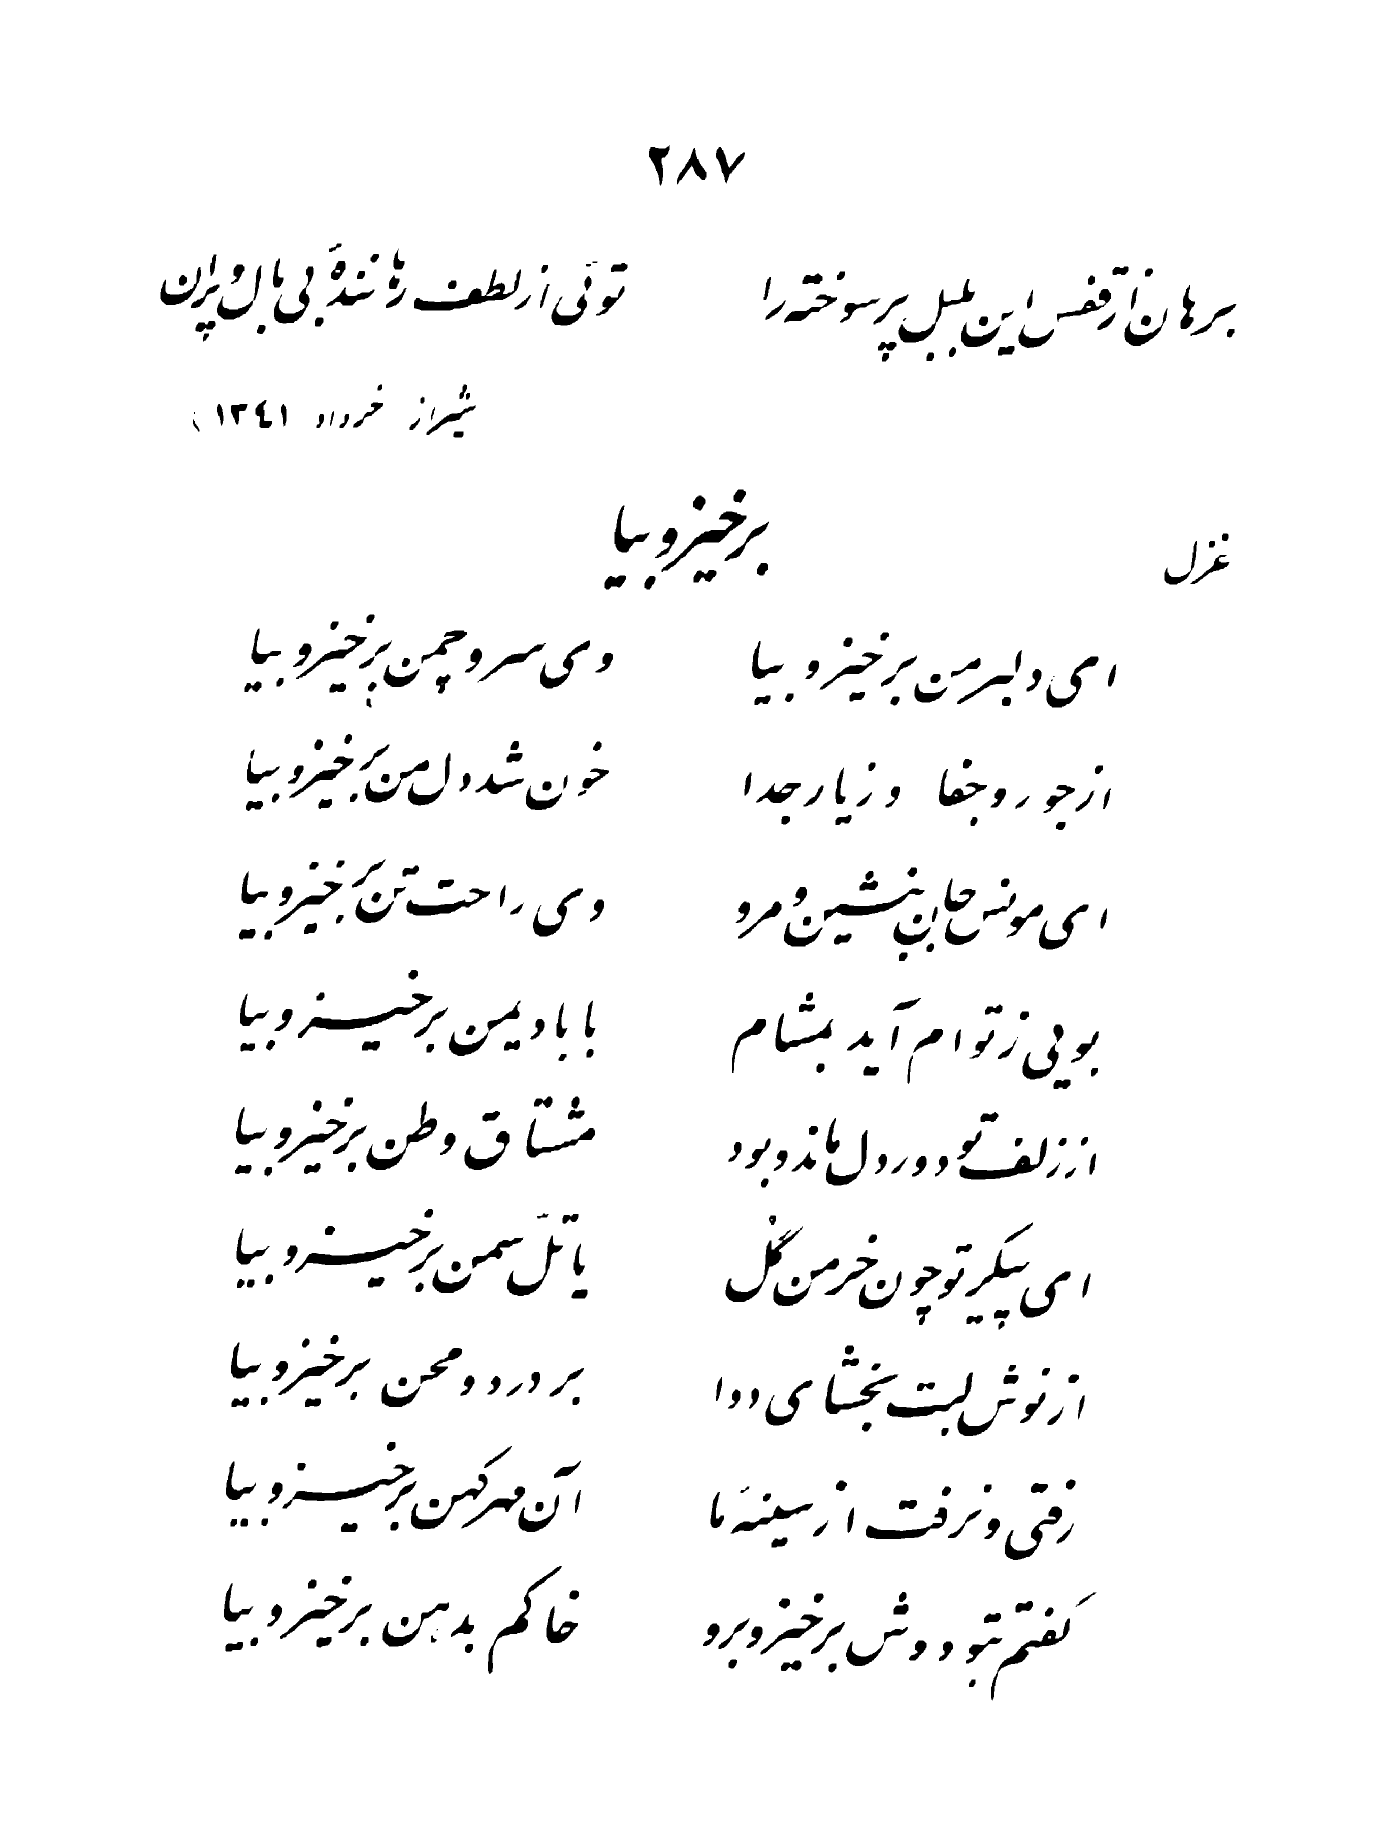 ۲۸۷
برهان از قفس این بلبل پرسوخته را توئی از لطف رهانندهٔ بی بال و پران
شیراز خرداد ۱۳۴۱)
برخیز و بیا
غزل
ای دلبر من برخیز و بیا وی سرو چمن برخیز و بیا
از جور و جفا وز یار جدا خون شد دل من برخیز و بیا
ای مونس جان بنشین و مرو وی راحت تن برخیز و بیا
بویی ز تو ام آید بمشام با باد یمن برخیز و بیا
از زلف تو دور دل ماند و بود مشتاق وطن برخیز و بیا
ای پیکر تو چون خرمن گل یا تلّ سمن برخیز و بیا
از نوش لبت بخشای دوا بر درد و محن برخیز و بیا
رفتی و نرفت از سینهٔ ما آن مهر کهن برخیز و بیا
گفتم بتو دوش برخیز و برو خاکم بدهن برخیز و بیا